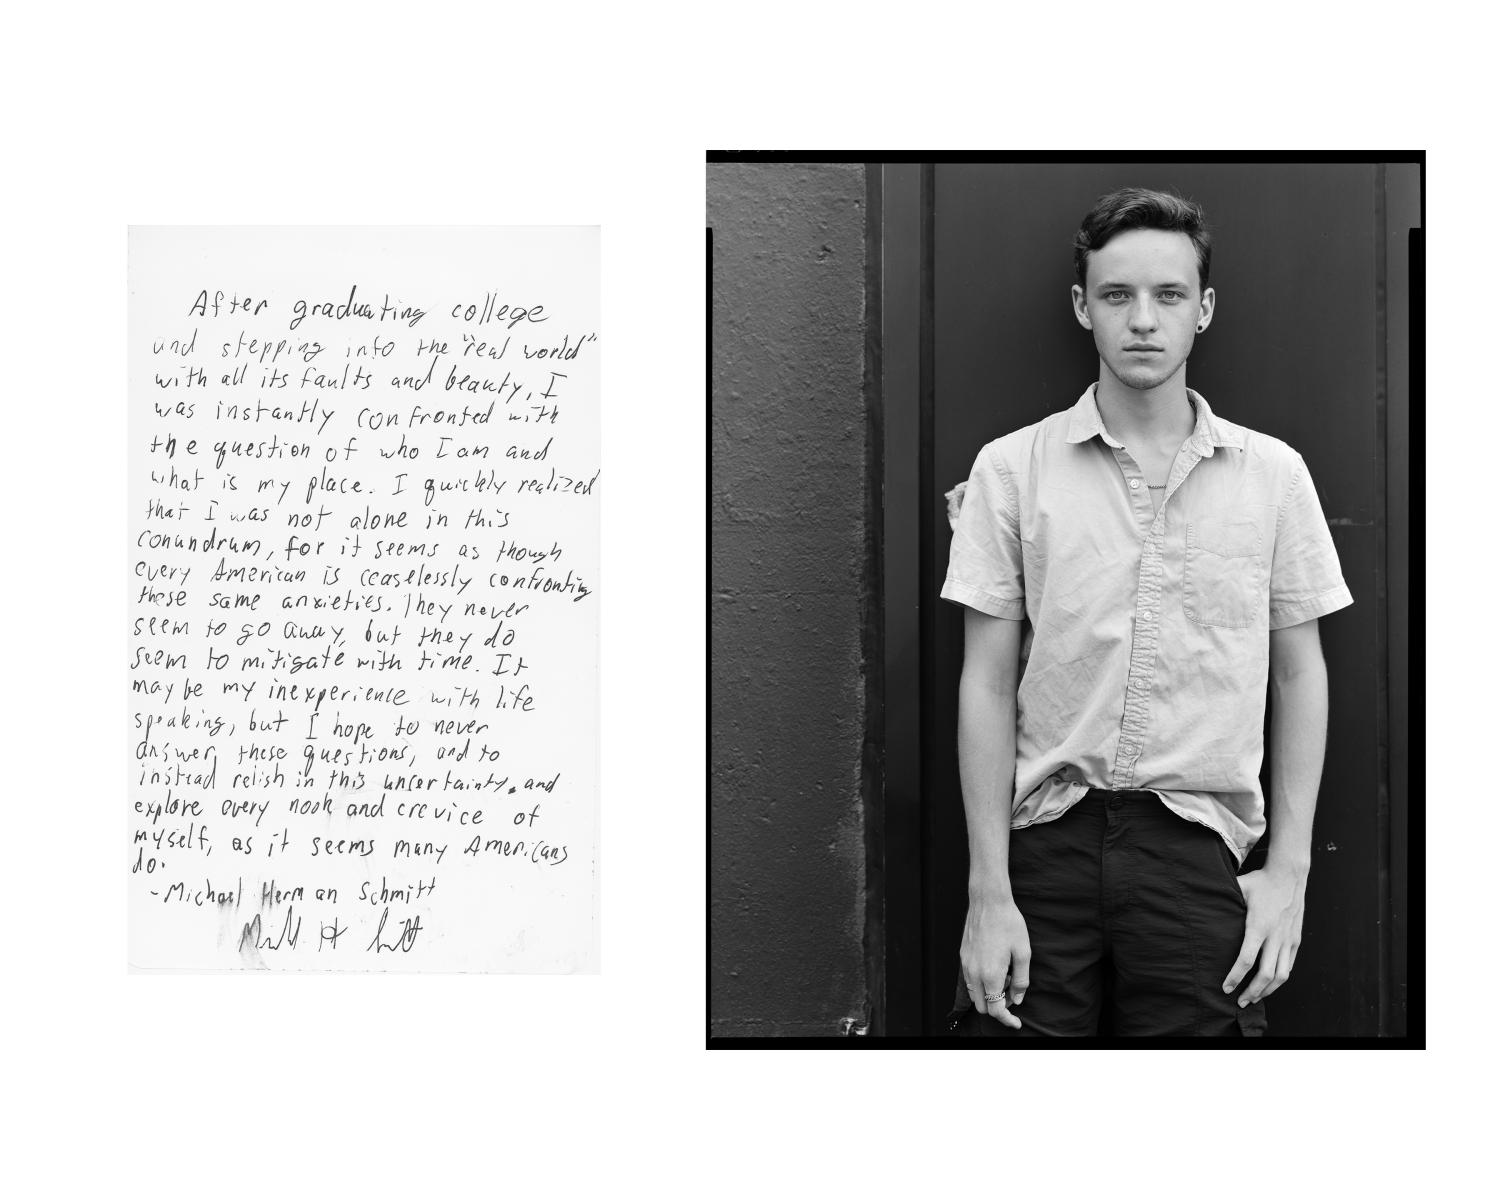 After graduating college
and stepping into the "real world"
with all its faults and beauty, I
was instantly confronted with
the question of who I am and
what is my place. I quickly realized
that I was not alone in this
conundrum, for it seems as though
every American is ceaselessly confronting
these same anxieties. They never
seem to go away, but they do
seem to mitigate with time. It
may be my inexperience with life
speaking, but I hope to never
answer these questions, and to
instead relish in this uncertainty, and
explore every nook and crevice of
myself, as it seems many Americans
do.
-Michael Herman Schmitt